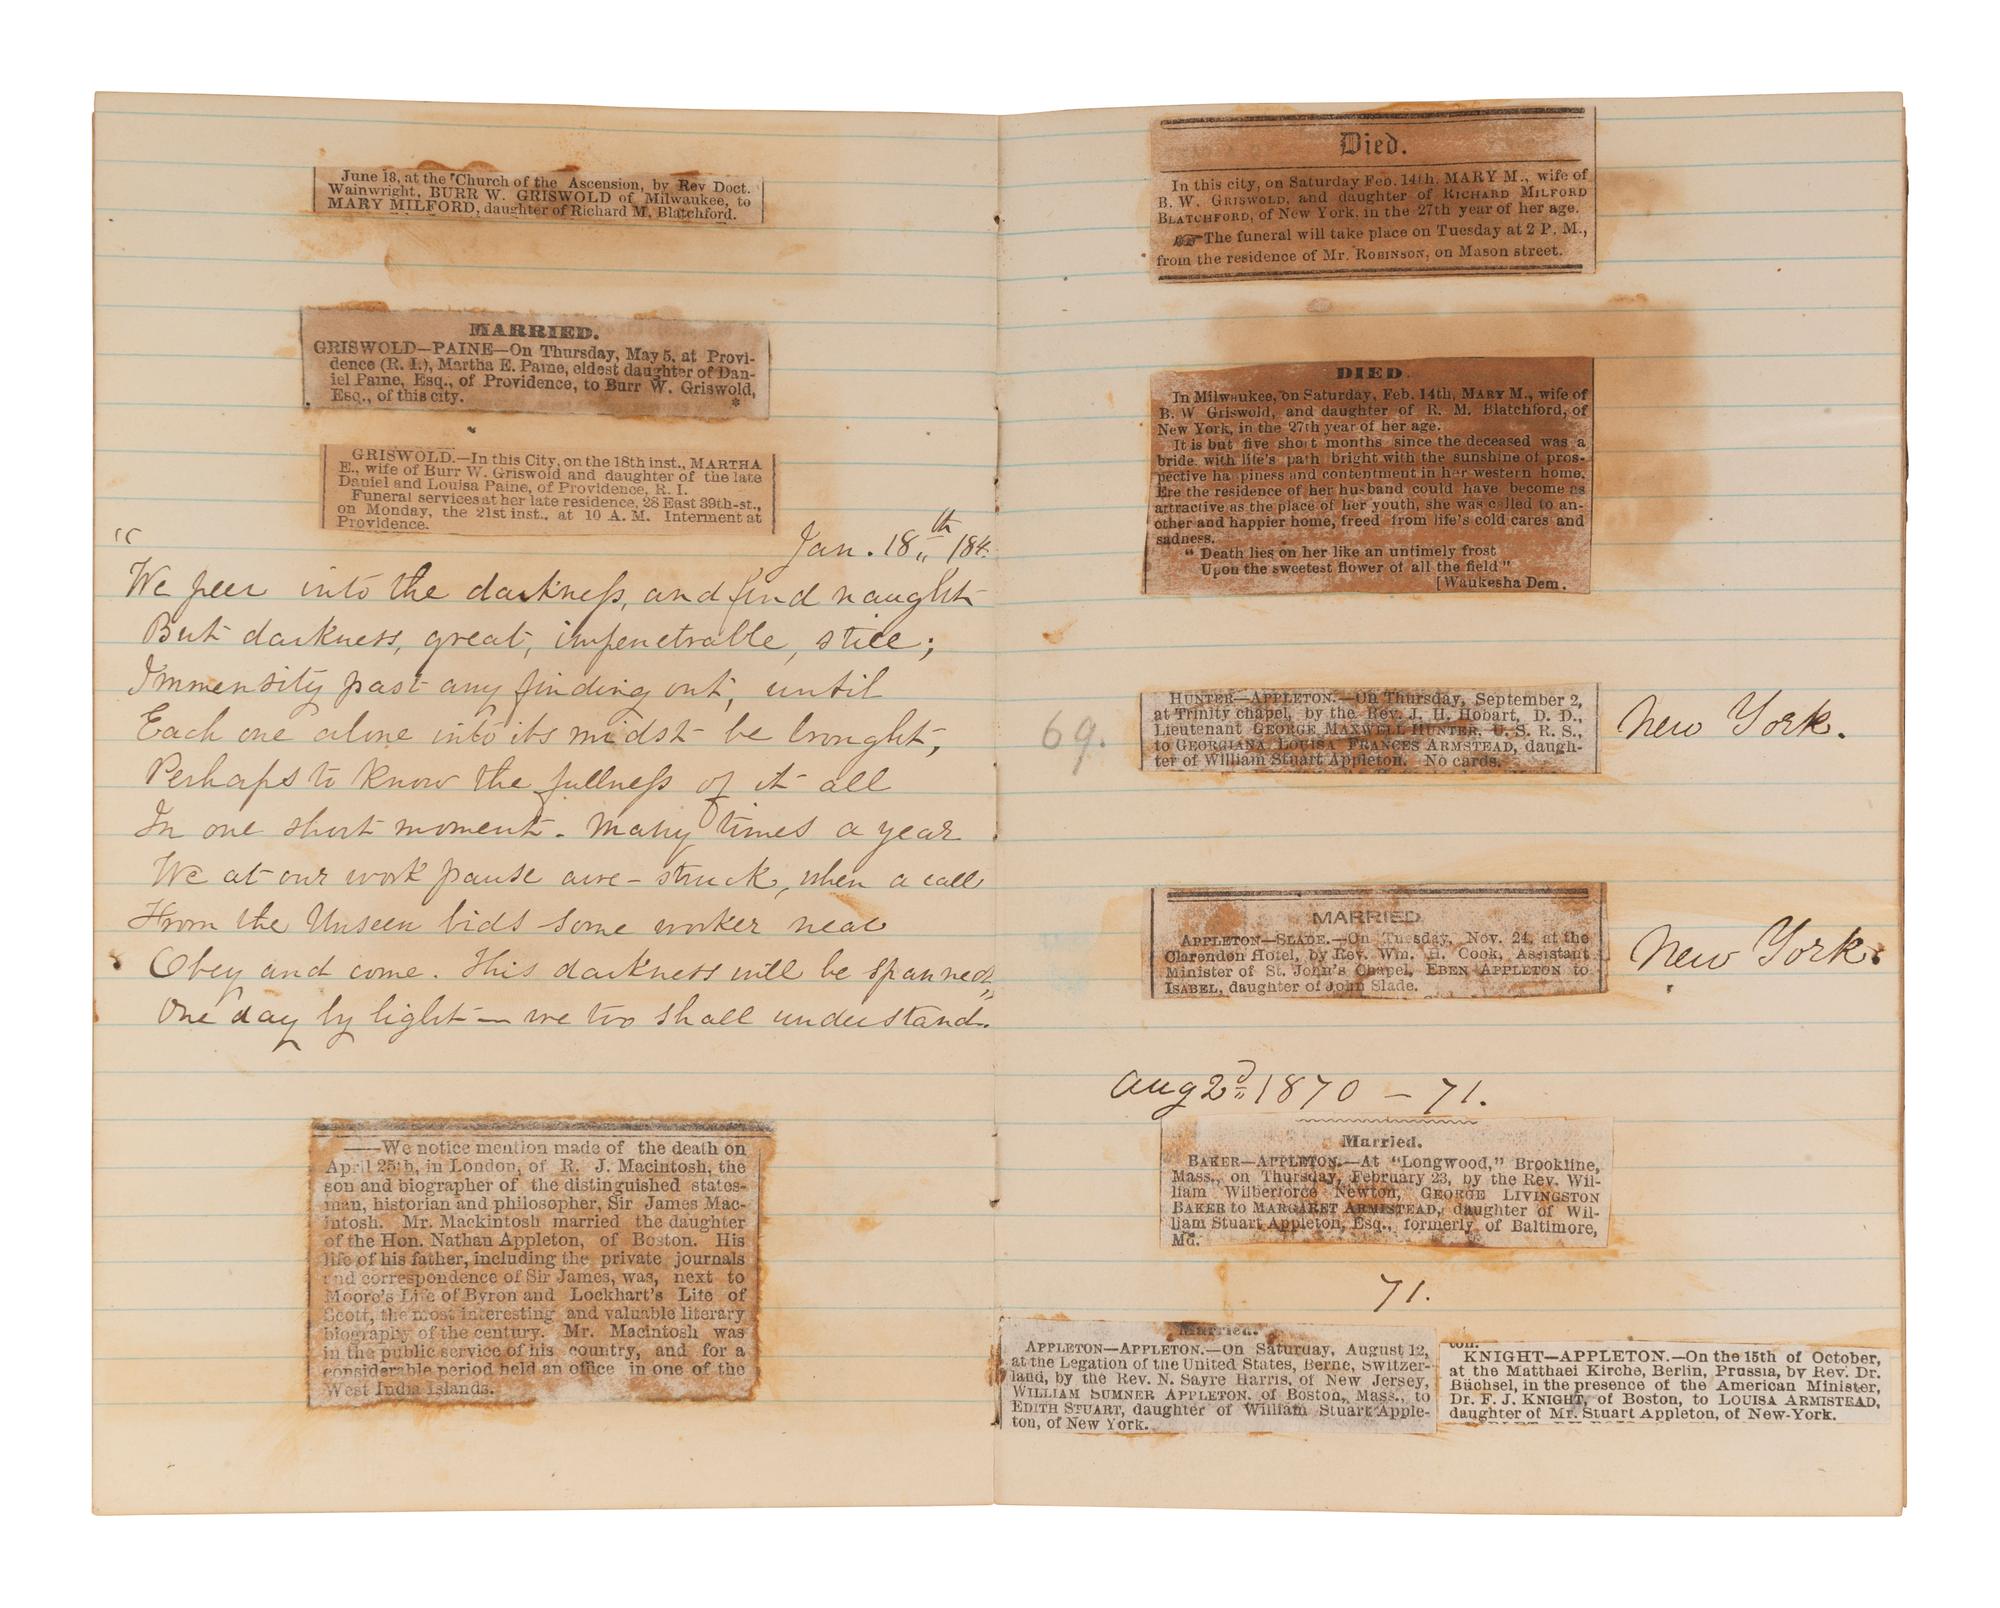 June 18, at the Church of the Ascension, by Rev Doct.
Wainwright, BURR W. GRISWOLD of Milwaukee, to
MARY MILFORD, daughter of Richard M. Blatchford.
MARRIED.
GRISWOLD—PAINE—On Thursday, May 5, at Provi-
dence (R. I.), Martha E. Paine, eldest daughter of Dan-
iel Paine, Esq., of Providence, to Burr W. Griswold,
Esq., of this city. *
GRISWOLD.—In this City, on the 18th inst., MARTHA
E., wife of Burr W. Griswold and daughter of the late
Daniel and Louisa Paine, of Providence, R. I.
Funeral services at her late residence, 28 East 39th-st.,
on Monday, the 21st inst., at 10 A. M. Interment at
Providence.
Jan. 18th 184
"We peer into the darkness, and find naught
But darkness, great, impenetrable, still;
Immensity past any finding out, until
Each one alone into its midst be brought,
Perhaps to know the fullness of it all
In one short moment. Many times a year
We at our work pause awe-struck, when a call
From the Unseen bids some worker near
Obey and come. This darkness will be spanned,
One day by light — we too shall understand."
——We notice mention made of the death on
April 25th, in London, of R. J. Macintosh, the
son and biographer of the distinguished states-
man, historian and philosopher, Sir James Mac-
intosh. Mr. Mackintosh married the daughter
of the Hon. Nathan Appleton, of Boston. His
life of his father, including the private journals
and correspondence of Sir James, was, next to
Moore's Life of Byron and Lockhart's Life of
Scott, the most interesting and valuable literary
biography of the century. Mr. Macintosh was
in the public service of his country, and for a
considerable period held an office in one of the
West India Islands.
Died.
In this city, on Saturday Feb. 14th, MARY M., wife of
B. W. GRISWOLD, and daughter of RICHARD MILFORD
BLATCHFORD, of New York, in the 27th year of her age.
☞ The funeral will take place on Tuesday at 2 P. M.,
from the residence of Mr. ROBINSON, on Mason street.
DIED.
In Milwaukee, on Saturday, Feb. 14th, MARY M., wife of
B. W Griswold, and daughter of R. M. Blatchford, of
New York, in the 27th year of her age.
It is but five short months since the deceased was a
bride, with life's path bright with the sunshine of pros-
pective happiness and contentment in her western home.
Ere the residence of her husband could have become as
attractive as the place of her youth, she was called to an-
other and happier home, freed from life's cold cares and
sadness.
"Death lies on her like an untimely frost
Upon the sweetest flower of all the field"
[Waukesha Dem.
69.
HUNTER—APPLETON.—On Thursday, September 2,
at Trinity chapel, by the Rev. J. H. Hobart, D. D.,
Lieutenant GEORGE MAXWELL HUNTER, U. S. R. S.,
to GEORGIANA LOUISA FRANCES ARMSTEAD, daugh-
ter of William Stuart Appleton. No cards.
New York.
MARRIED
APPLETON—SLADE.—On Tuesday, Nov. 24, at the
Clarendon Hotel, by Rev. Wm. H. Cook, Assistant
Minister of St. John's Chapel, EBEN APPLETON to
ISABEL, daughter of John Slade.
New York.
Aug 2d 1870 – 71.
Married.
BAKER—APPLETON.—At "Longwood," Brookline,
Mass., on Thursday, February 23, by the Rev. Wil-
liam Wilberforce Newton, GEORGE LIVINGSTON
BAKER to MARGARET ARMISTEAD, daughter of Wil-
liam Stuart Appleton, Esq., formerly of Baltimore,
Md.
71.
Married.
APPLETON—APPLETON.—On Saturday, August 12,
at the Legation of the United States, Berne, Switzer-
land, by the Rev. N. Sayre Harris, of New Jersey,
WILLIAM SUMNER APPLETON, of Boston, Mass., to
EDITH STUART, daughter of William Stuart Apple-
ton, of New York.
ton.
KNIGHT—APPLETON.—On the 15th of October,
at the Matthaei Kirche, Berlin, Prussia, by Rev. Dr.
Büchsel, in the presence of the American Minister,
Dr. F. J. KNIGHT, of Boston, to LOUISA ARMISTEAD,
daughter of Mr. Stuart Appleton, of New-York.